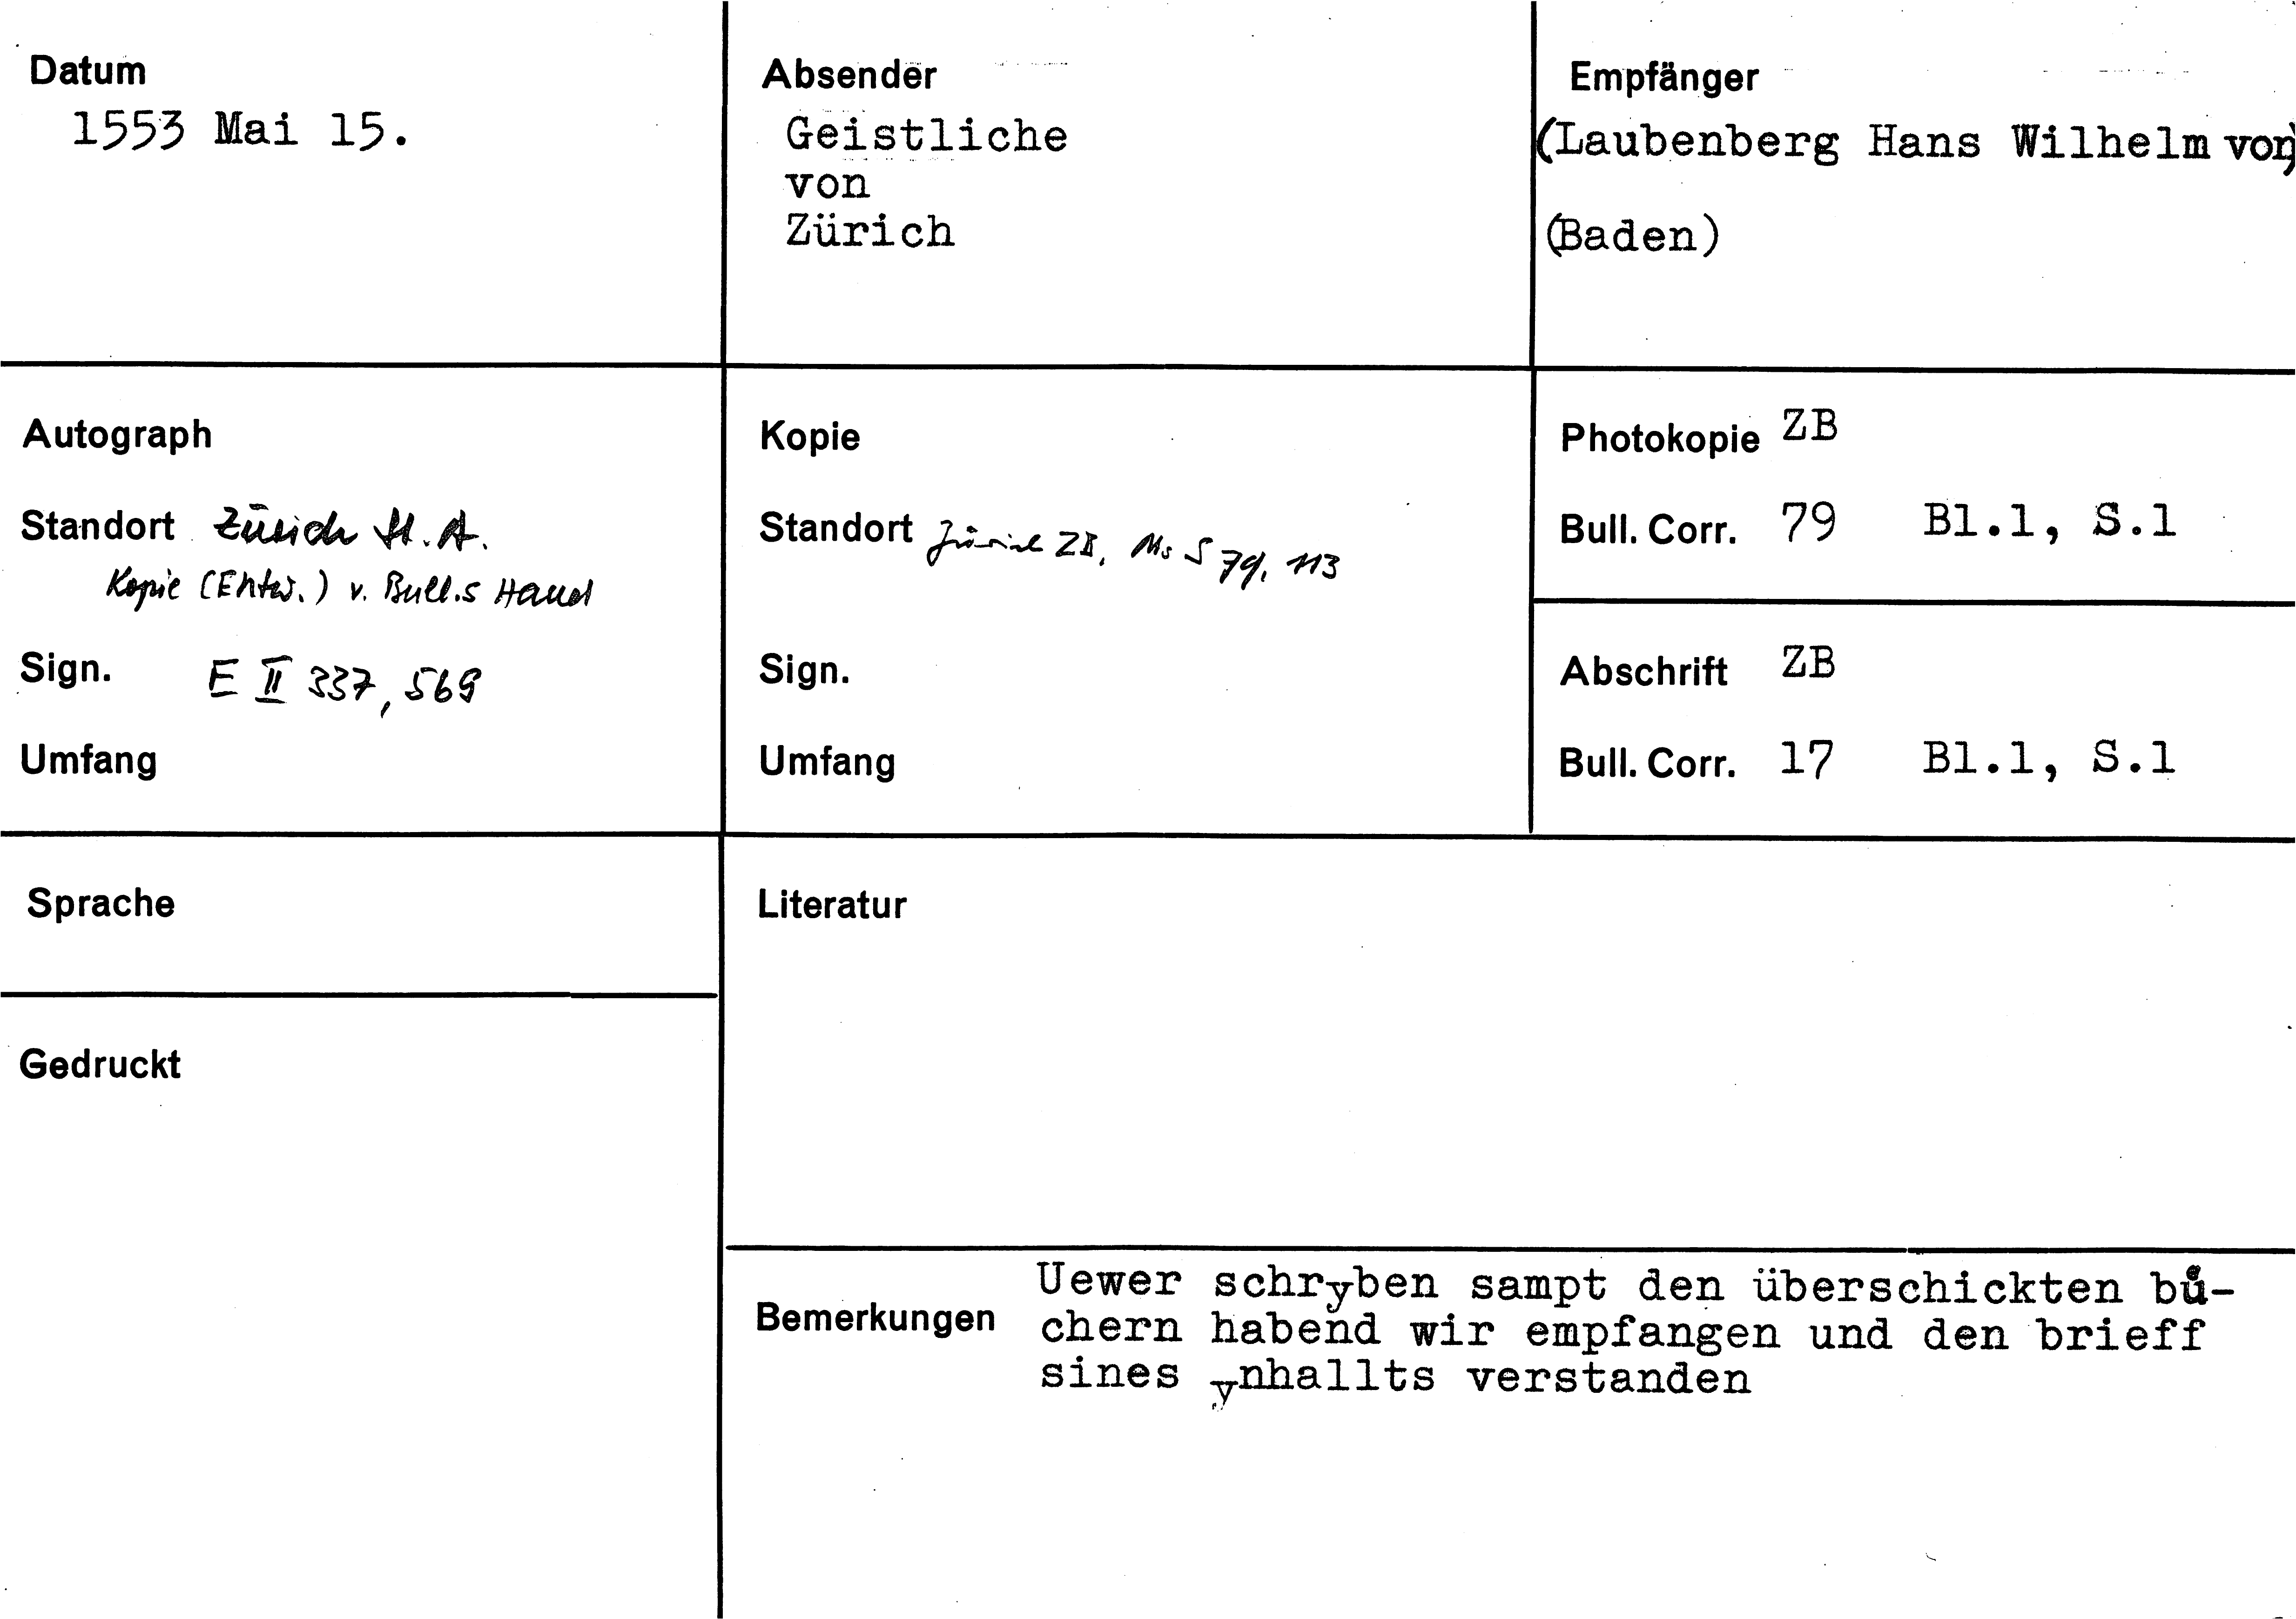 Datum
1553 Mai 15.
Absender
Geistliche
von
Zürich
Empfänger
(Laubenberg Hans Wilhelm von)
(Baden)
Autograph
Standort Zürich St.A.
Kopie (Entw.) v. Bull.s Hand
Sign. E II 337, 569
Umfang
Kopie
Standort Zürich ZB, Ms S 79, 113
Sign.
Umfang
Photokopie ZB
Bull. Corr. 79 Bl.1, S.1
Abschrift ZB
Bull. Corr. 17 Bl.1, S.1
Sprache
Gedruckt
Literatur
Bemerkungen
Uewer schryben sampt den überschickten bů-
chern habend wir empfangen und den brieff
sines ynhallts verstanden